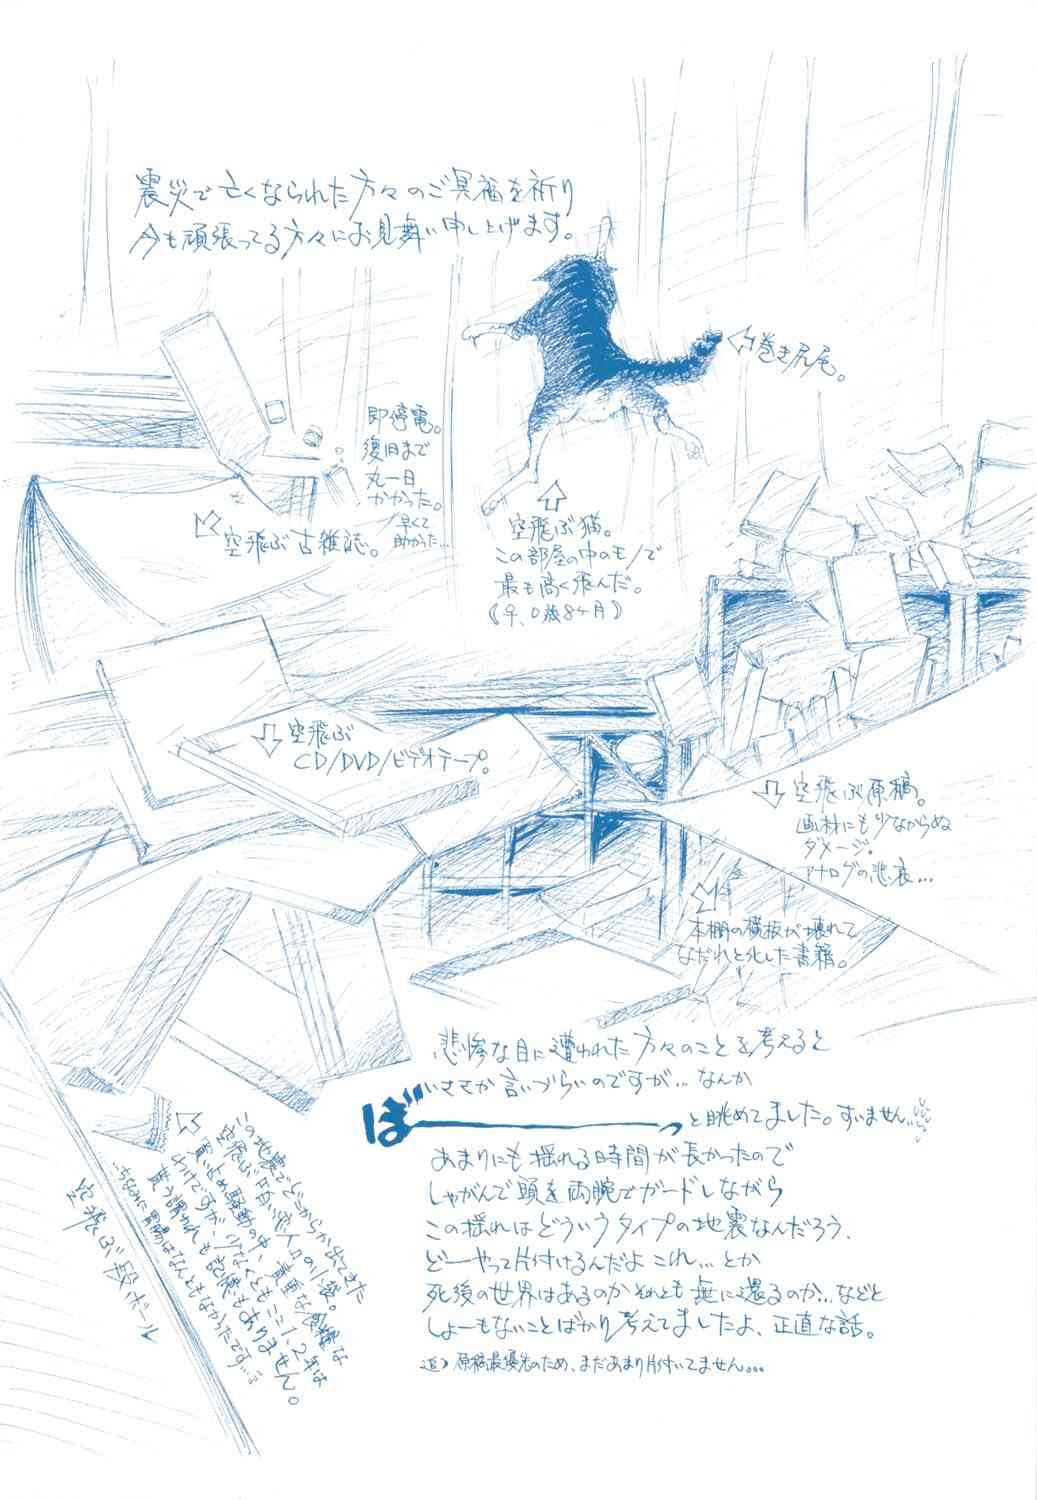 震災で亡くなられた方々のご冥福を祈り
今も頑張ってる方々にお見舞い申し上げます。
巻き尻尾。
即停電。
復旧まで
丸一日
かかった。
早くて
助かった…
空飛ぶ古雑誌。
空飛ぶ猫。
この部屋の中のモノで
最も高く飛んだ。
《♀、0歳8ヶ月》
空飛ぶ
CD/DVD/ビデオテープ。
空飛ぶ原稿。
画材にも少なからぬ
ダメージ。
アナログの悲哀…
本棚の横板が壊れて
なだれと化した書籍。
悲惨な目に遭われた方々のことを考えると
いささか言いづらいのですが…なんか
ぼ―――――っと眺めてました。すいません…
あまりにも揺れる時間が長かったので
しゃがんで頭を両腕でガードしながら
この揺れはどういうタイプの地震なんだろう、
どーやって片付けるんだよこれ…とか
死後の世界はあるのかそれとも無に還るのか…などと
しょーもないことばかり考えてましたよ、正直な話。
追)原稿最優先のため、まだあまり片付いてません…
この地震でどこからか出てきた
空飛ぶ
買い占め騒動の中、貴重な食糧な
わけですが、少なくともここ1、2年は
貰う謂われも記憶もありません。
ちなみに胃腸はなんともなかったです…
空飛ぶ段ボール